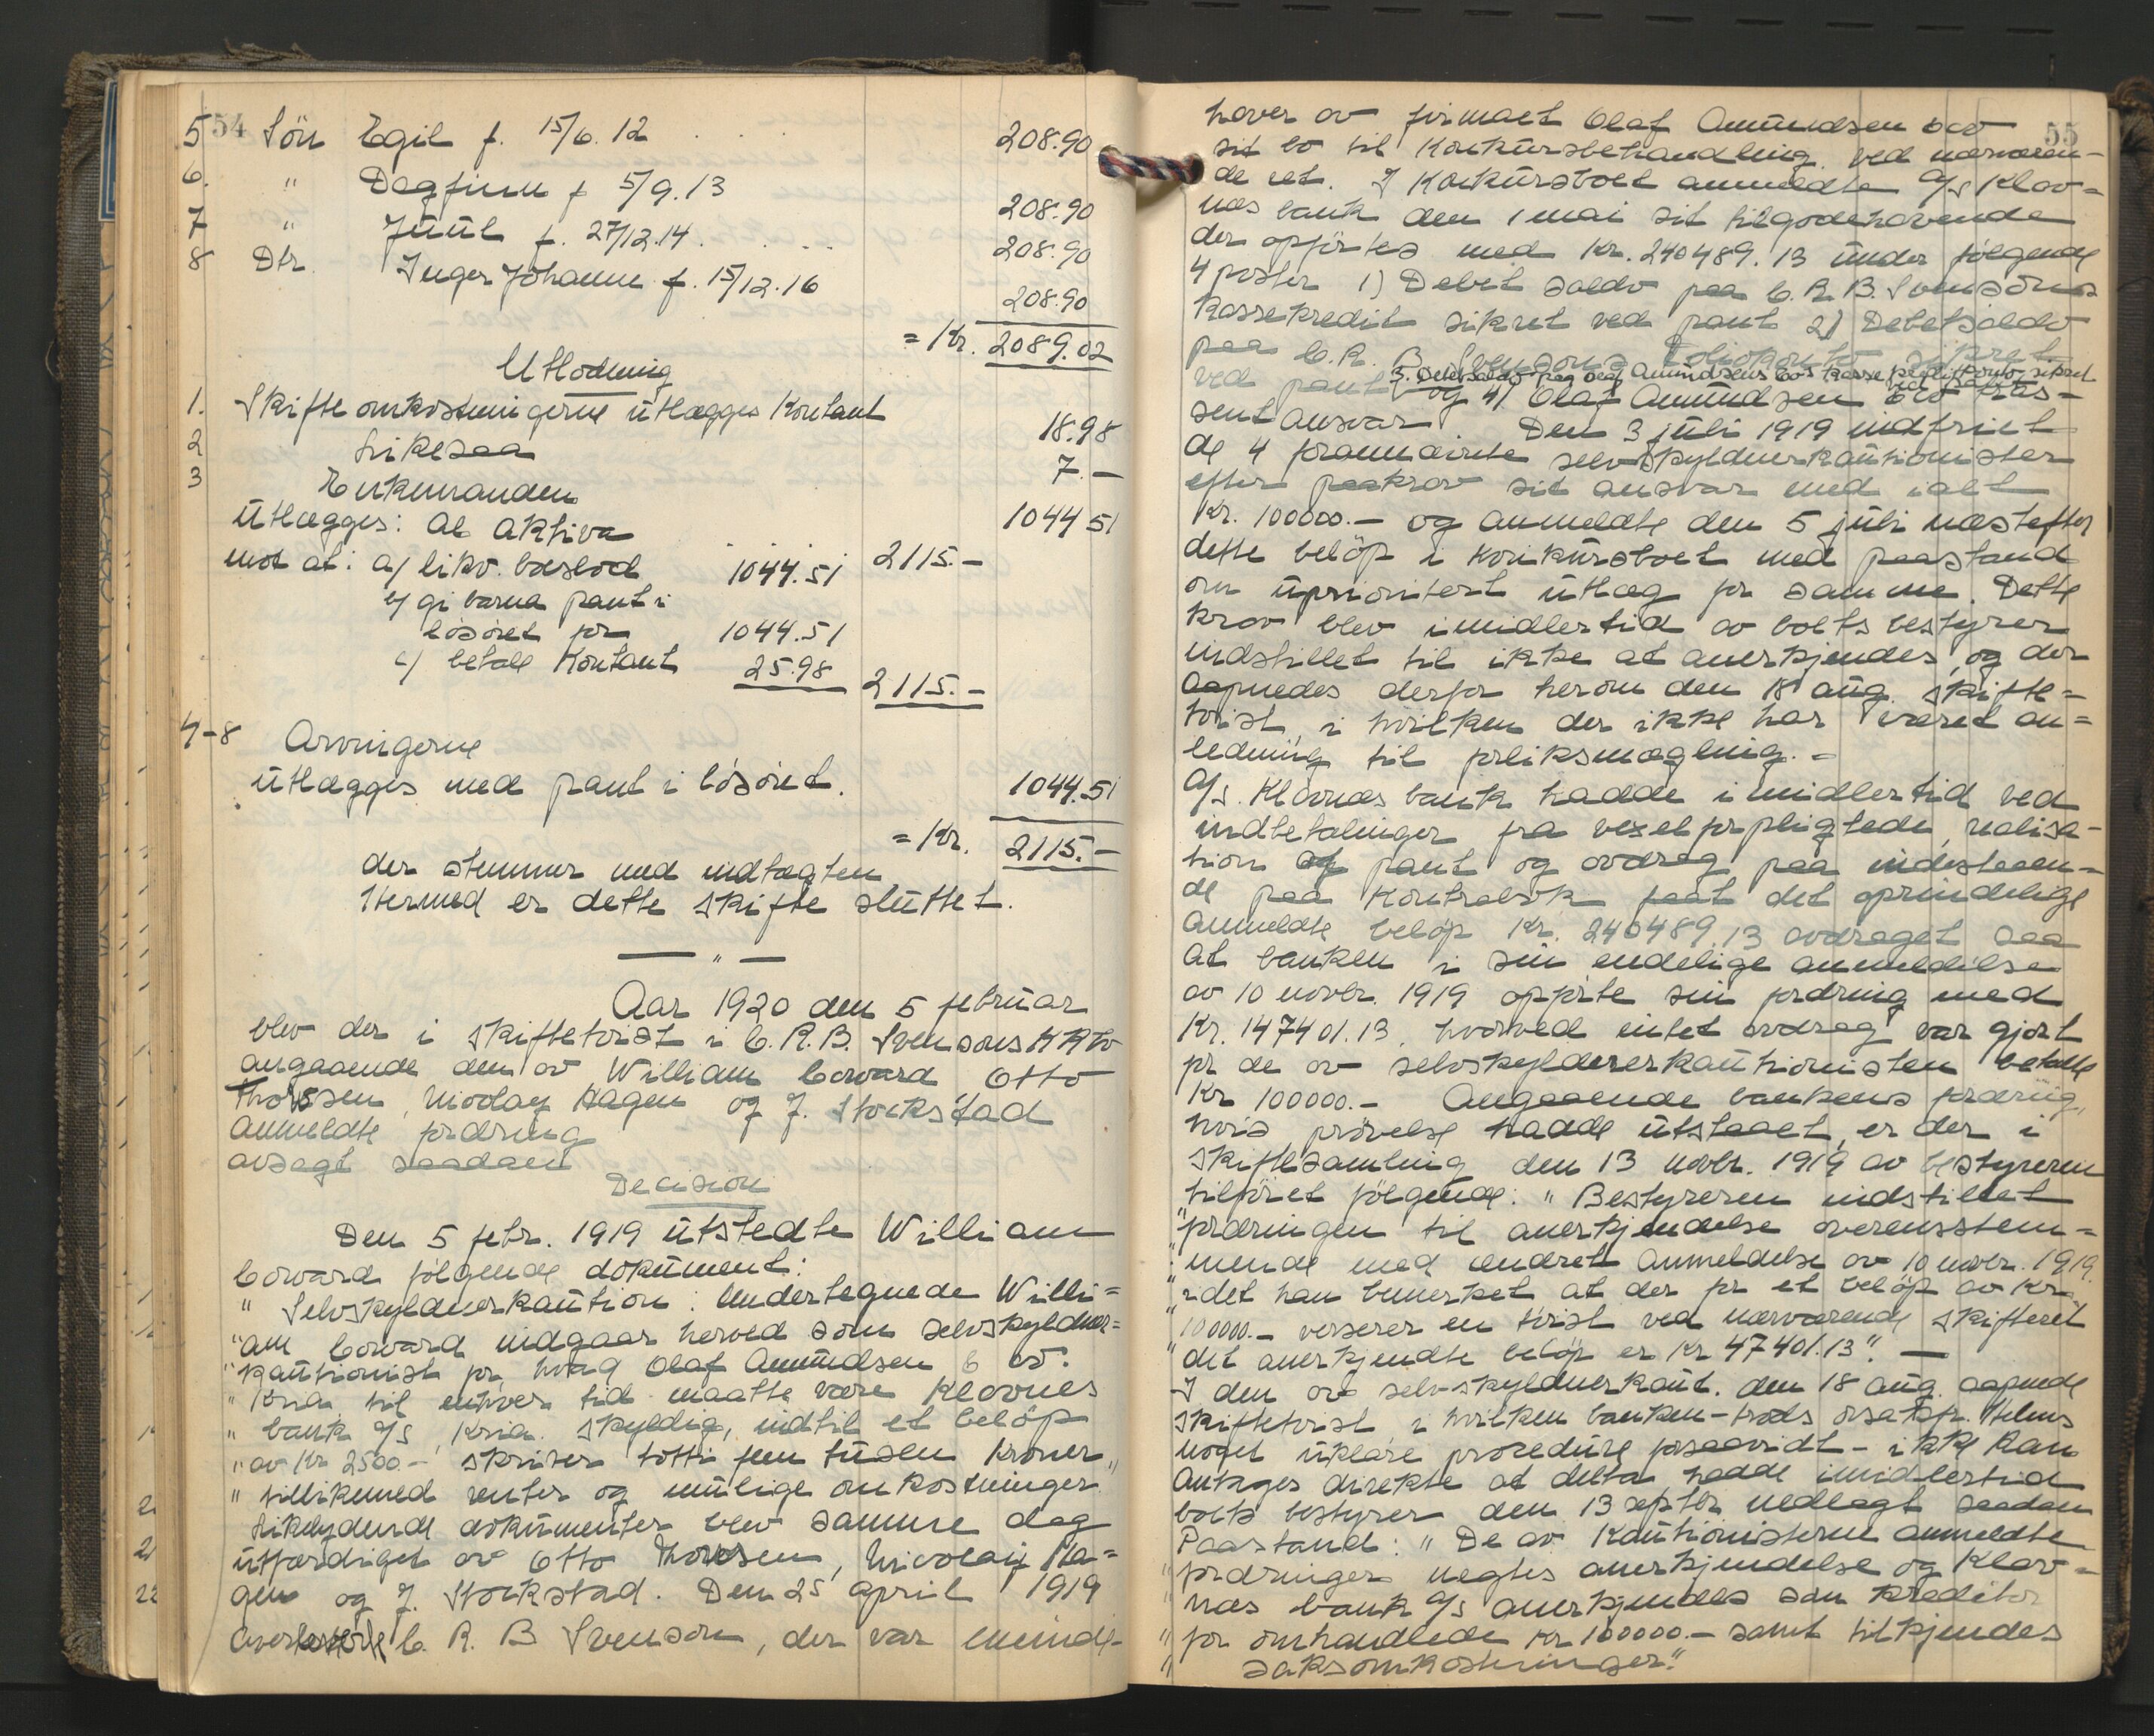 54
5 Sön Egil f. 15/6.12 . . . 208.90
6. " Dagfinn f 5/9.13 208.90
7 " Juul f. 27/12.14. . . . 208.90
8 Dtr. Inger Johanne f. 15/12.16 208.90
= Kr. 2089.02
Utlodning
1. Skifteomkostningerne utlægges Kontant 18.98
2 Likesaa 7.-
3 Enkemanden 1044 51
utlægges: Al Aktiva 2115.-
mot at: a/ likv. boslod 1044.51
b/ gi barna pant i
lösöret for 1044.51
c/ betale Kontant 25.98 2115.-
4-8 Arvingerne
utlægges med pant i lösöret. 1044.51
= Kr. 2115.-
der stemmer med indtægten
Hermed er dette skifte sluttet.
— " —
Aar 1920 den 5 februar
blev der i skiftetvist i C.R.B. Svensons KKbo
angaaende den av William Coward Otto
Thoresen, Nicolay Hagen og J. Stockstad
Anmeldte fordring
avsagt saadan
Decision
Den 5 febr. 1919 utstedte William
Coward følgende dokument:
" Selvskyldnerkaution: Undertegnede Willi=
"am Coward indgaar herved som selvskyldner=
"kautionist for, hvad Olaf Amundsen & Co.
" Kria. til enhver tid maatte være Klovnes
" bank A/S, Kria. skyldig, indtil et belöp
"av Kr 2500.- skriver totti fem tusen Kroner "
" tillikemed renter og mulige omkostninger.
Likelydende dokumenter blev samme dag
utfærdiget av Otto Thoresen, Nicolay Ha=
gen og J. Stockstad. Den 25 april 1919
C. R. B Svenson, der var eneinde-
55
haver av firmaet Olaf Amundsen & Co
sit bo til Konkursbehandling ved nærværen-
de ret. I Konkursboet anmeldte A/S Klov=
næs bank den 1 mai sit tilgodehavende
der opförtes med Kr. 240489.13 under følgende
4 poster 1) Debet saldo paa C.R.B. Svensons
Kassekredit sikret ved pant 2) Debetsaldo
paa C.R. B. Svensons Foliokonto sikret
3. Debetsaldo paa Olaf Amundsens & Cos Kassekreditkonto, sikret ved pant
ved pant og 4) Olaf Amundsen & Co tras-
sentansvar. Den 3 juli 1919 indfriet
de 4 forannævnte selvskyldnerkautionister
efter paakrav sit ansvar med ialt
Kr. 100000.- og anmeldte den 5 juli næstefter
dette belöp i Konkursboet med paastand
om uprioritert utlæg for samme. Dette
Krav blev imidlertid av boets bestyrer
indstillet til ikke at anerkjendes, og der
aapnedes derfor herom den 18 aug. skifte=
tvist, i hvilken der ikke har været an=
ledning til forliksmægling. -
A/S. Klovnæs bank hadde imidlertid ved
indbetalinger fra vexelforpligtede, realisa-
tion af pant og avdrag paa indestaaen-
de paa Kontrabok faat det oprindelige
anmeldte belöp Kr. 240489.13 avdraget saa
at banken i sin endelige anmeldelse
av 10 novbr. 1919 opførte sin fordring med
Kr. 147401.13, hvorved intet avdrag var gjort
for de av selvskyldnerkautionisten betalte
Kr 100000.- Angaaende bankens fordring,
hvis prövelse hadde utstaaet, er der i
skiftesamling den 13 novbr. 1919 av bestyreren
tilføiet følgende: " Bestyreren indstillet
"fordringen til anerkjendelse overensstem=
"mende med ændret Anmeldelse av 10 novbr. 1919.
"idet han bemerket at der for et belöp av Kr.
"100000.- verserer en tvist ved nærværende skifteret
"det anerkjendte belöp er Kr 47401.13". —
I den av selvskyldnerkaut. den 18 aug. aapnede
skiftetvist i hvilken banken-trods
noget uklare procedure forsaavidt - ikke kan
antages direkte at delta hadde imidlertid
boets bestyrer den 13 septbr nedlagt saadan
Paastand: " De av Kautionisterne anmeldte
"fordringer negtes anerkjendelse og Klov=
"næs bank A/S anerkjendes som Kreditor
"for omhandlede Kr 100000.- samt tilkjendes
" saksomkostninger."